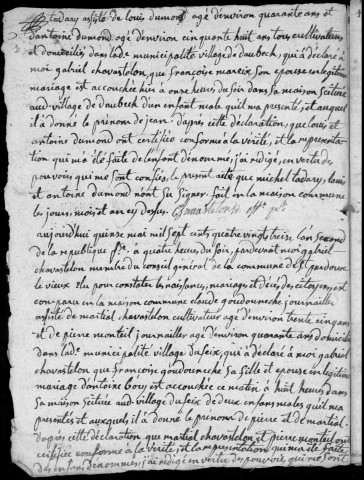 tadary assisté de louis dumond agé denviron quarante ans et
dantoine dumond agé denviron cinquante huit ans tous cultivateurs
et domiciliés dans ladte municipalité village de daubech, qui à déclaré à
moi gabriel chavastelon, que françoise mareix son epouse en legitime
mariage est accouchée hier a onse heures du soir dans sa maison scituée
aud. village de daubech d'un enfant male quil ma presenté, et auquel
il à donné le prénom de jean. dapres cette déclaration, que louis et
antoine dumond ont certifiée conforme à la verité, et la représentation
qui m'a été faite de lenfant denommé, j'ai rédigé, en vertu des
pouvoirs qui me sont confiés, le present acte que michel tadary, louis
et antoine dumond n'ont sû signer. fait en la maison commune
les jours, mois et an cy dessus. Chavastelon off. pb.
aujourdhui quinse mai mil sept cents quatre vingt treise lan second
de la republique fse. à quatre heures du soir, pardevant moi gabriel
chavastelon membre du conseil général de la commune de St pardoux
le vieux élu pour constater les naissances, mariages et décès des citoyens, est
comparu en la maison commune claude goudouneche journailler
assisté de martial chavastelon cultivateur agé denviron trente cinq ans
et de pierre monteil journailler agé denviron quarante ans domiciliés
dans ladte municipalité village du feix, qui à déclaré à moi gabriel
chavastelon que françoise goudouneche sa fille et epouse en legitime
mariage dantoine Gory est accouchée ce matin à huit heures dans
sa maison scituée aud. village du feix de deux enfans males quil ma
presentés et auxquels il à donné le prenom de pierre et de martial.
dapres cette déclaration que martial chavastelon et pierre monteil ont
certifiée conforme à la verité, et la representation qui ma été faite
des enfans denommés, j'ai rédigé en vertu des pouvoirs qui me sont